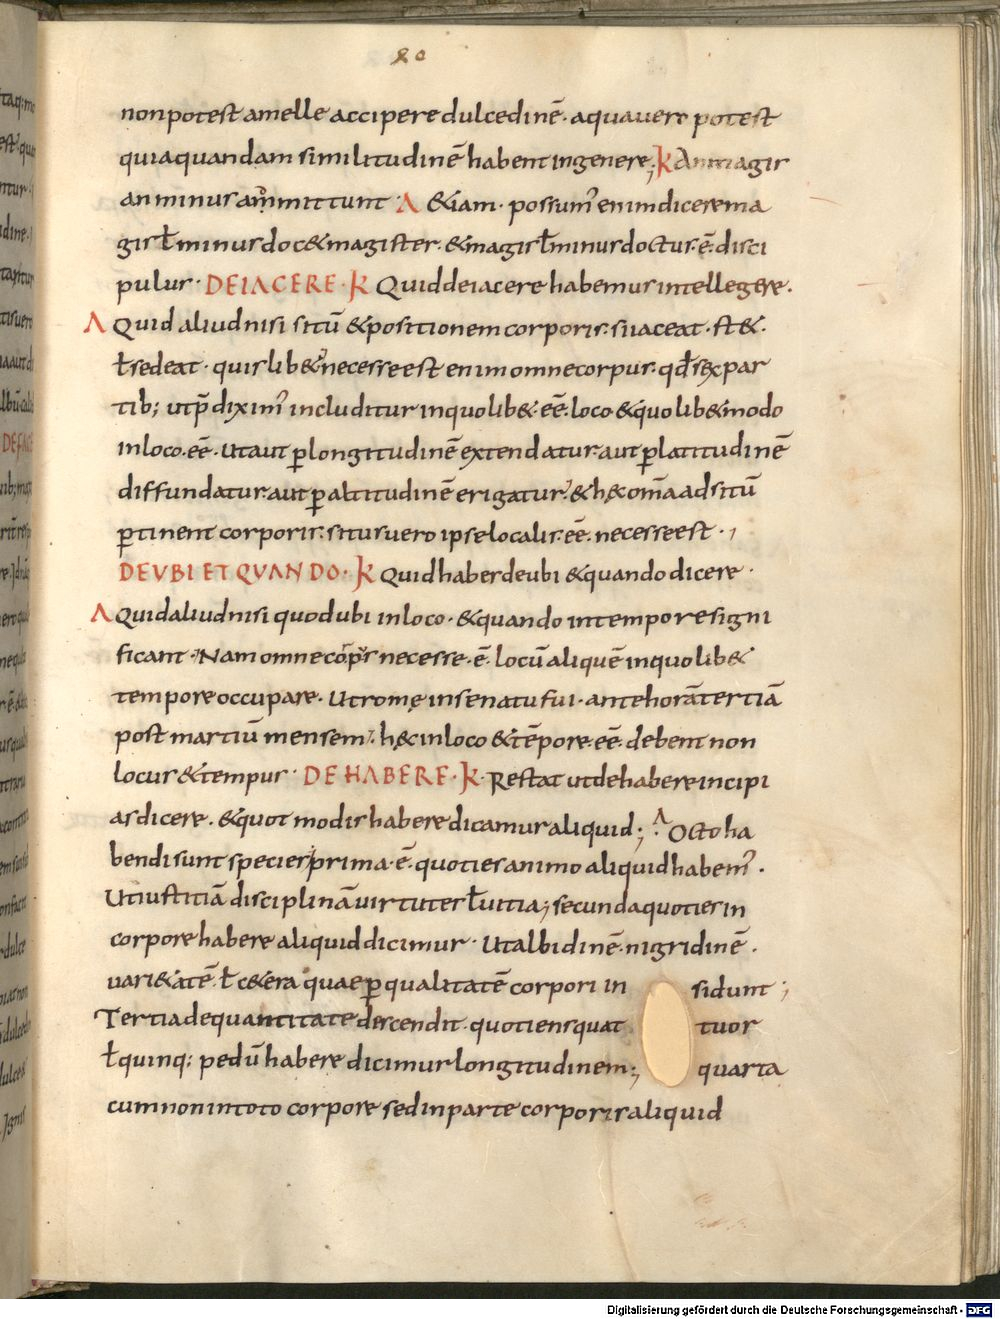 20
non potest amelle accipere dulcedinē· aqua uero potest
quia quandam similitudinē habent in genere; K An magis
an minus ammittunt Λ &iam· possum' enim dicere ma
gis ł minus doc& magister· & magis ł minus doctus·ē· disci
pulus· DE IACERE· K Quid de iacere habemus intellegere.
Λ Quid aliud nisi sitū & positionem corporis· si iaceat· st&·
ł sedeat· quislib& necesse est enim omne corpus· qđ sex par
tib; ut p̄diximʼ includitur in quolib&·eē· loco & quolib& modo
in loco·eē· Ut aut ꝑ longitudinē extendatur· aut ꝑ latitudinē
diffundatur· aut ꝑ altitudinē erigatur·' & hęc om̄a ad sitū
ꝑtinent corporis· situs uero ipse localis·eē· necesse est·,
DE VBI ET QVANDO· K Quid habes de ubi & quando dicere·
Λ Quid aliud nisi quod ubi in loco· & quando in tempore signi
ficant· Nam omne cōꝑs necesse·ē· locū aliquē in quolib&
tempore occupare· Ut romę in senatu fui· ante horā tertiā
post martiū mensem·, hęc in loco & tēpore·eē· debent non
locus & tempus· DE HABERE· K· Restat ut de habere incipi
as dicere· & quot modis habere dicamur aliquid; Λ Octo ha
bendi sunt species prima·ē· quoties animo aliquid habem'·
Ut iustitiā disciplinā uirtutes ł uitia; secunda quoties in
corpore habere aliquid dicimur· Ut albidinē· nigridinē·
uari&atē· ł c&era quae ꝑ qualitatē corpori in sidunt;
Tertia de quantitate descendit· quotiens quat tuor
ł quinq; pedū habere dicimur longitudinem; quarta
cum non in toto corpore sed in parte corporis aliquid
Digitalisierung gefördert durch die Deutsche Forschungsgemeinschaft - DFG